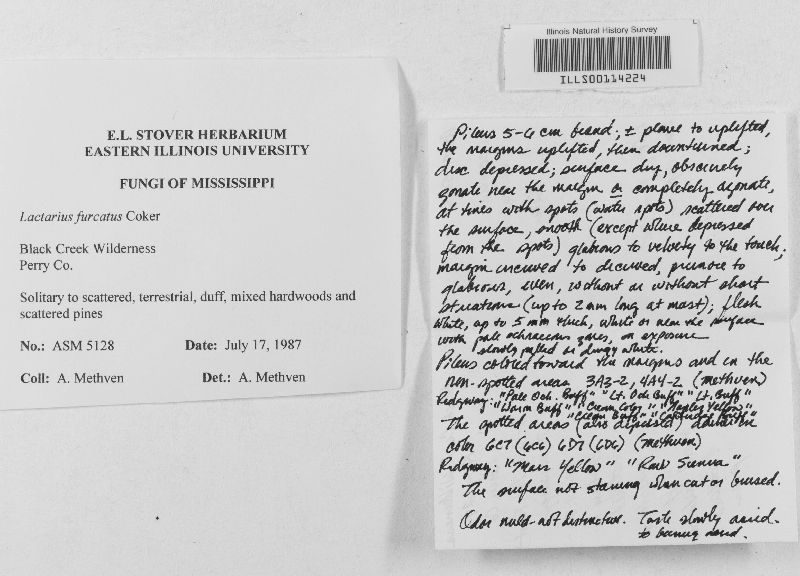 Illinois Natural History Survey
ILLS00114224
E.L. STOVER HERBARIUM
EASTERN ILLINOIS UNIVERSITY
FUNGI OF MISSISSIPPI
Lactarius furcatus Coker
Black Creek Wilderness
Perry Co.
Solitary to scattered, terrestrial, duff, mixed hardwoods and
scattered pines
No.: ASM 5128 Date: July 17, 1987
Coll: A. Methven Det.: A. Methven
Pileus 5-6 cm broad; ± plane to uplifted,
the margins uplifted, then downturned;
disc depressed; surface dry, obscurely
zonate near the margin or completely azonate,
at times with spots (water spots) scattered over
the surface, smooth (except where depressed
from the spots) glabrous to velvety to the touch;
margin incurved to decurved, pruinose to
glabrous, even, without or without short
striations (up to 2 mm long at most); flesh
white, up to 5 mm thick, white or near the surface
with pale ochraceous zones, on exposure
slowly
dingy white.
Pileus colored toward the margins and in the
non-spotted areas 3A3-2, 4A4-2 (Methven)
Ridgway: "Pale Och. Buff" "Lt. Och Buff" "Lt. Buff"
"Warm Buff" "Cream Color" "Naples Yellow"
"Cream Buff" "Cartridge Buff"
The spotted areas (also depressed) darker in
color 6C7 (6C6) 6D7 (6D6) (Methven)
Ridgway: "Mars Yellow" "Raw Sienna"
The surface not staining when cut or bruised.
Odor mild-not distinctive. Taste slowly acrid.
to burning acrid.